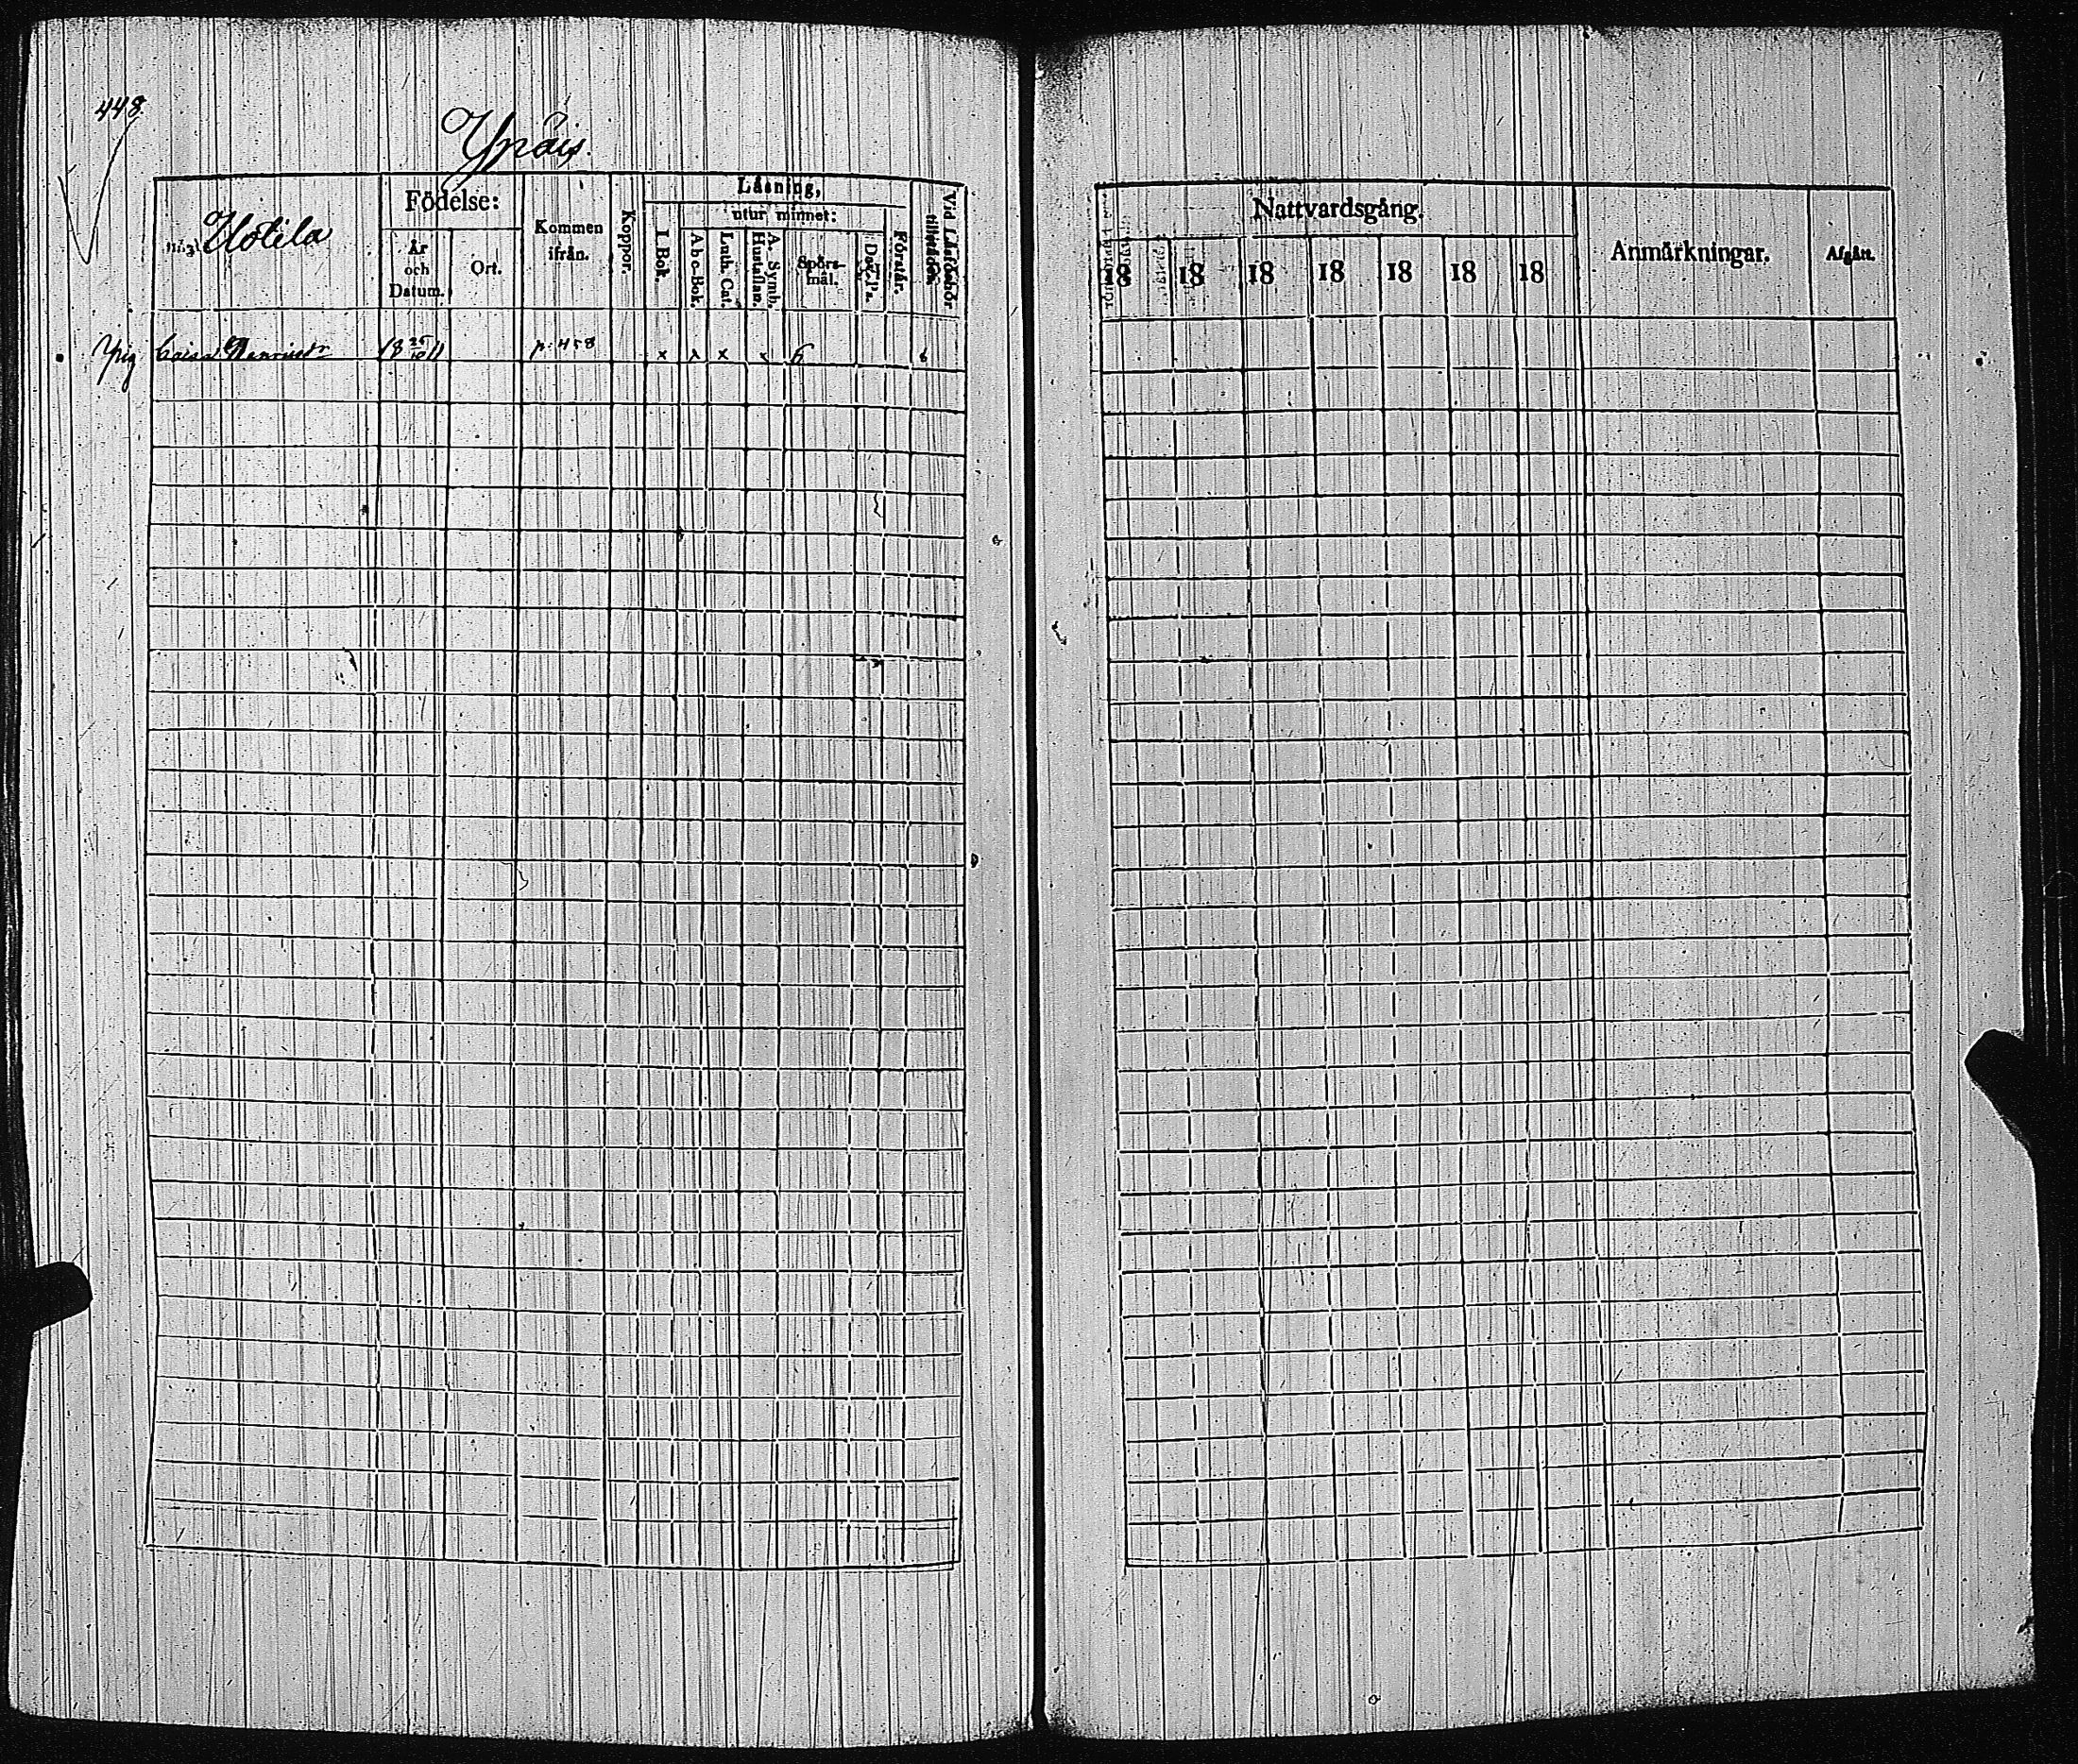 448.
Ypäis.
Födelse:
Läsning,
utur minnet:
Kommen ifrån.
Koppor.
I Bok.
Abc-Bok.
Luth. Cat.
A. Symb. Hustaflan.
Spörs-mål.
Förstår.
Vid Läsförhör
Uotila
År och Datum.
Ort.
Pig Caisa Henricsdr 18 25/10 11 p: 458 x x x x 6 6
Nattvardsgång.
Anmärkningar.
Afgått.
18 18 18 18 18 18 18